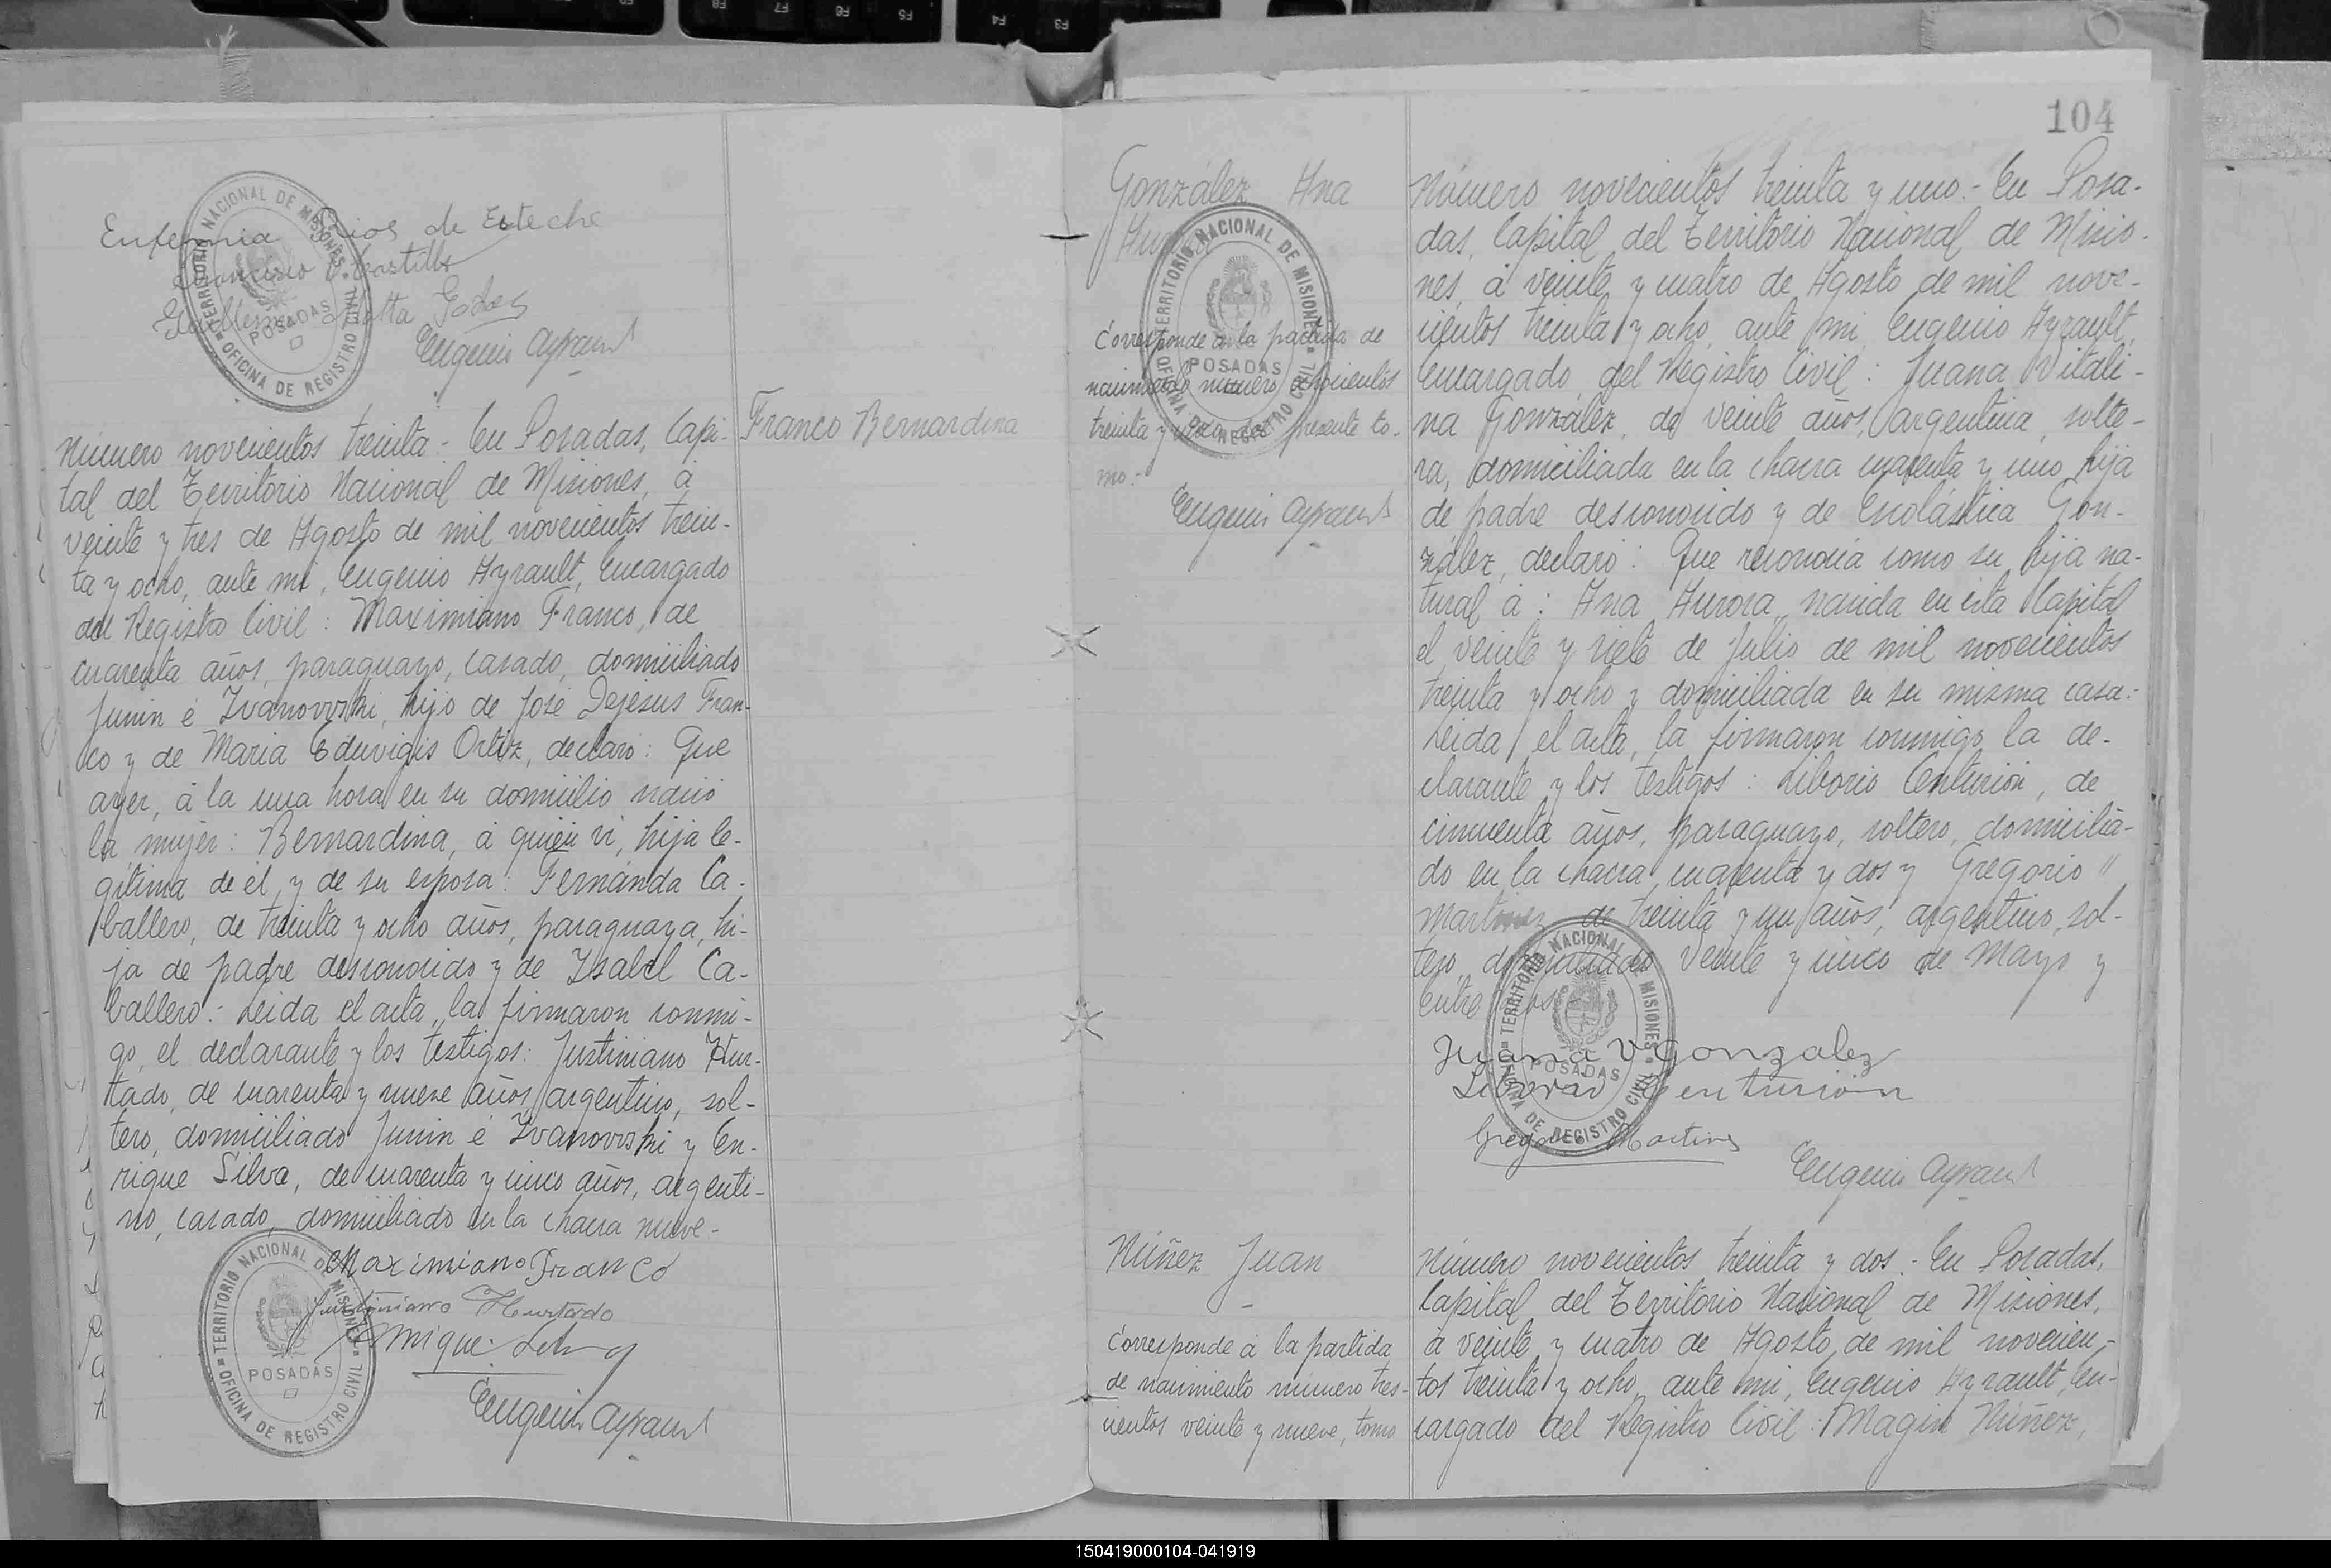 104
Eufemia Rios de Esteche
Francisco Castillo
Eugenio Ayrault
TERRITORIO NACIONAL DE MISIONES
POSADAS
OFICINA DE REGISTRO CIVIL
Franco Bernardina
Número novecientos treinta - En Posadas, Capi-
tal del Territorio Nacional de Misiones, á
veinte y tres de Agosto de mil novecientos trein-
ta y ocho, ante mi, Eugenio Ayrault, Encargado
del Registro Civil: Maximiano Franco, de
cuarenta años, paraguayo, casado, domiciliado
Junin é Ivanovvski, hijo de José Dejesus Fran-
co y de Maria Eduvigis Ortiz, declaró: Que
ayer, á la una hora en su domicilio nació
la mujer: Bernardina, á quien vi, hija le-
gitima de él y de su esposa: Fernánda Ca-
ballero, de treinta y ocho años, paraguaya, hi-
ja de padre desconocido y de Ysabel Ca-
ballero.- Leida el acta, la firmaron conmi-
go, el declarante y los testigos: Justiniano Hur-
tado, de cuarenta y nueve años, argentino, sol-
tero, domiciliado Junin é Ivanovvski y En-
rique Silva, de cuarenta y cinco años, argenti-
no, casado, domiciliado en la chacra nueve-
Maximiano Franco
Justiniano Hurtado
Enrique Silva
Eugenio Ayrault
TERRITORIO NACIONAL DE MISIONES
POSADAS
OFICINA DE REGISTRO CIVIL
González Ana
TERRITORIO NACIONAL DE MISIONES
POSADAS
OFICINA DE REGISTRO CIVIL
Corresponde á la partida de
nacimiento número ochocientos
treinta y del presente to-
mo.-
Eugenio Ayrault
Número novecientos treinta y uno.- En Posa-
das, Capital del Territorio Nacional de Misio-
nes, á veinte y cuatro de Agosto de mil nove-
cientos treinta y ocho, ante mi, Eugenio Ayrault,
Encargado del Registro Civil: Juana Vitali-
na González, de veinte años, argentina, solte-
ra, domiciliada en la chacra cuarenta y uno, hija
de padre desconocido y de Escolástica Gon-
zález, declaró: Que reconocia como su hija na-
tural á: Ana Aurora, nacida en esta Capital
el veinte y siete de Julio de mil novecientos
treinta y ocho y domiciliada en su misma casa.-
Leida el acta, la firmaron conmigo la de-
clarante y los testigos: Liborio Centurión, de
cincuenta años, paraguayo, soltero, domicilia-
do en la chacra cuarenta y dos y Gregorio "
Martinez, de treinta y un años, argentino, sol-
tero, domiciliado Veinte y cinco de Mayo y
Entre Rios
Juana V Gonzalez
Liborio Centurion
Gregorio Martines
Eugenio Ayrault
TERRITORIO NACIONAL DE MISIONES
POSADAS
OFICINA DE REGISTRO CIVIL
Núñez Juan
Corresponde á la partida
de nacimiento número tres-
cientos veinte y nueve, tomo
Número novecientos treinta y dos.- En Posadas,
Capital del Territorio Nacional de Misiones,
á veinte y cuatro de Agosto de mil novecien-
tos treinta y ocho, ante mi, Eugenio Ayrault, En-
cargado del Registro Civil: Magin Núñez,
150419000104-041919